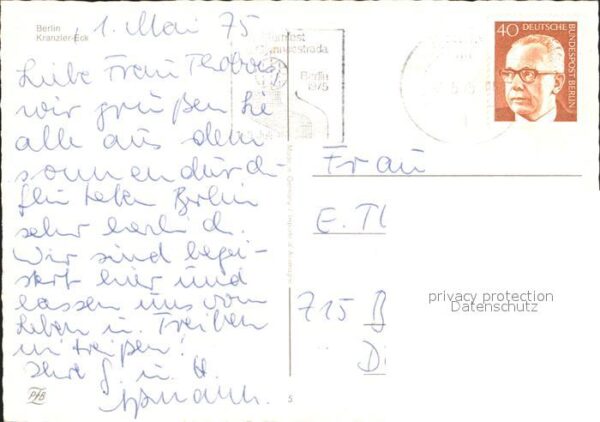 Berlin
Kranzler-Eck
1. Mai 75
Liebe Frau
wir grüßen Sie
alle aus dem
sonnendurch-
fluteten Berlin
sehr herzlich.
Wir sind begei-
stert hier und
lassen uns vom
Leben u. Treiben
mitreißen!
Ihre G. u. H.
PfB
5
Berlin
1975
40
DEUTSCHE BUNDESPOST BERLIN
Frau
E. Tl
715 B
D
privacy protection
Datenschutz